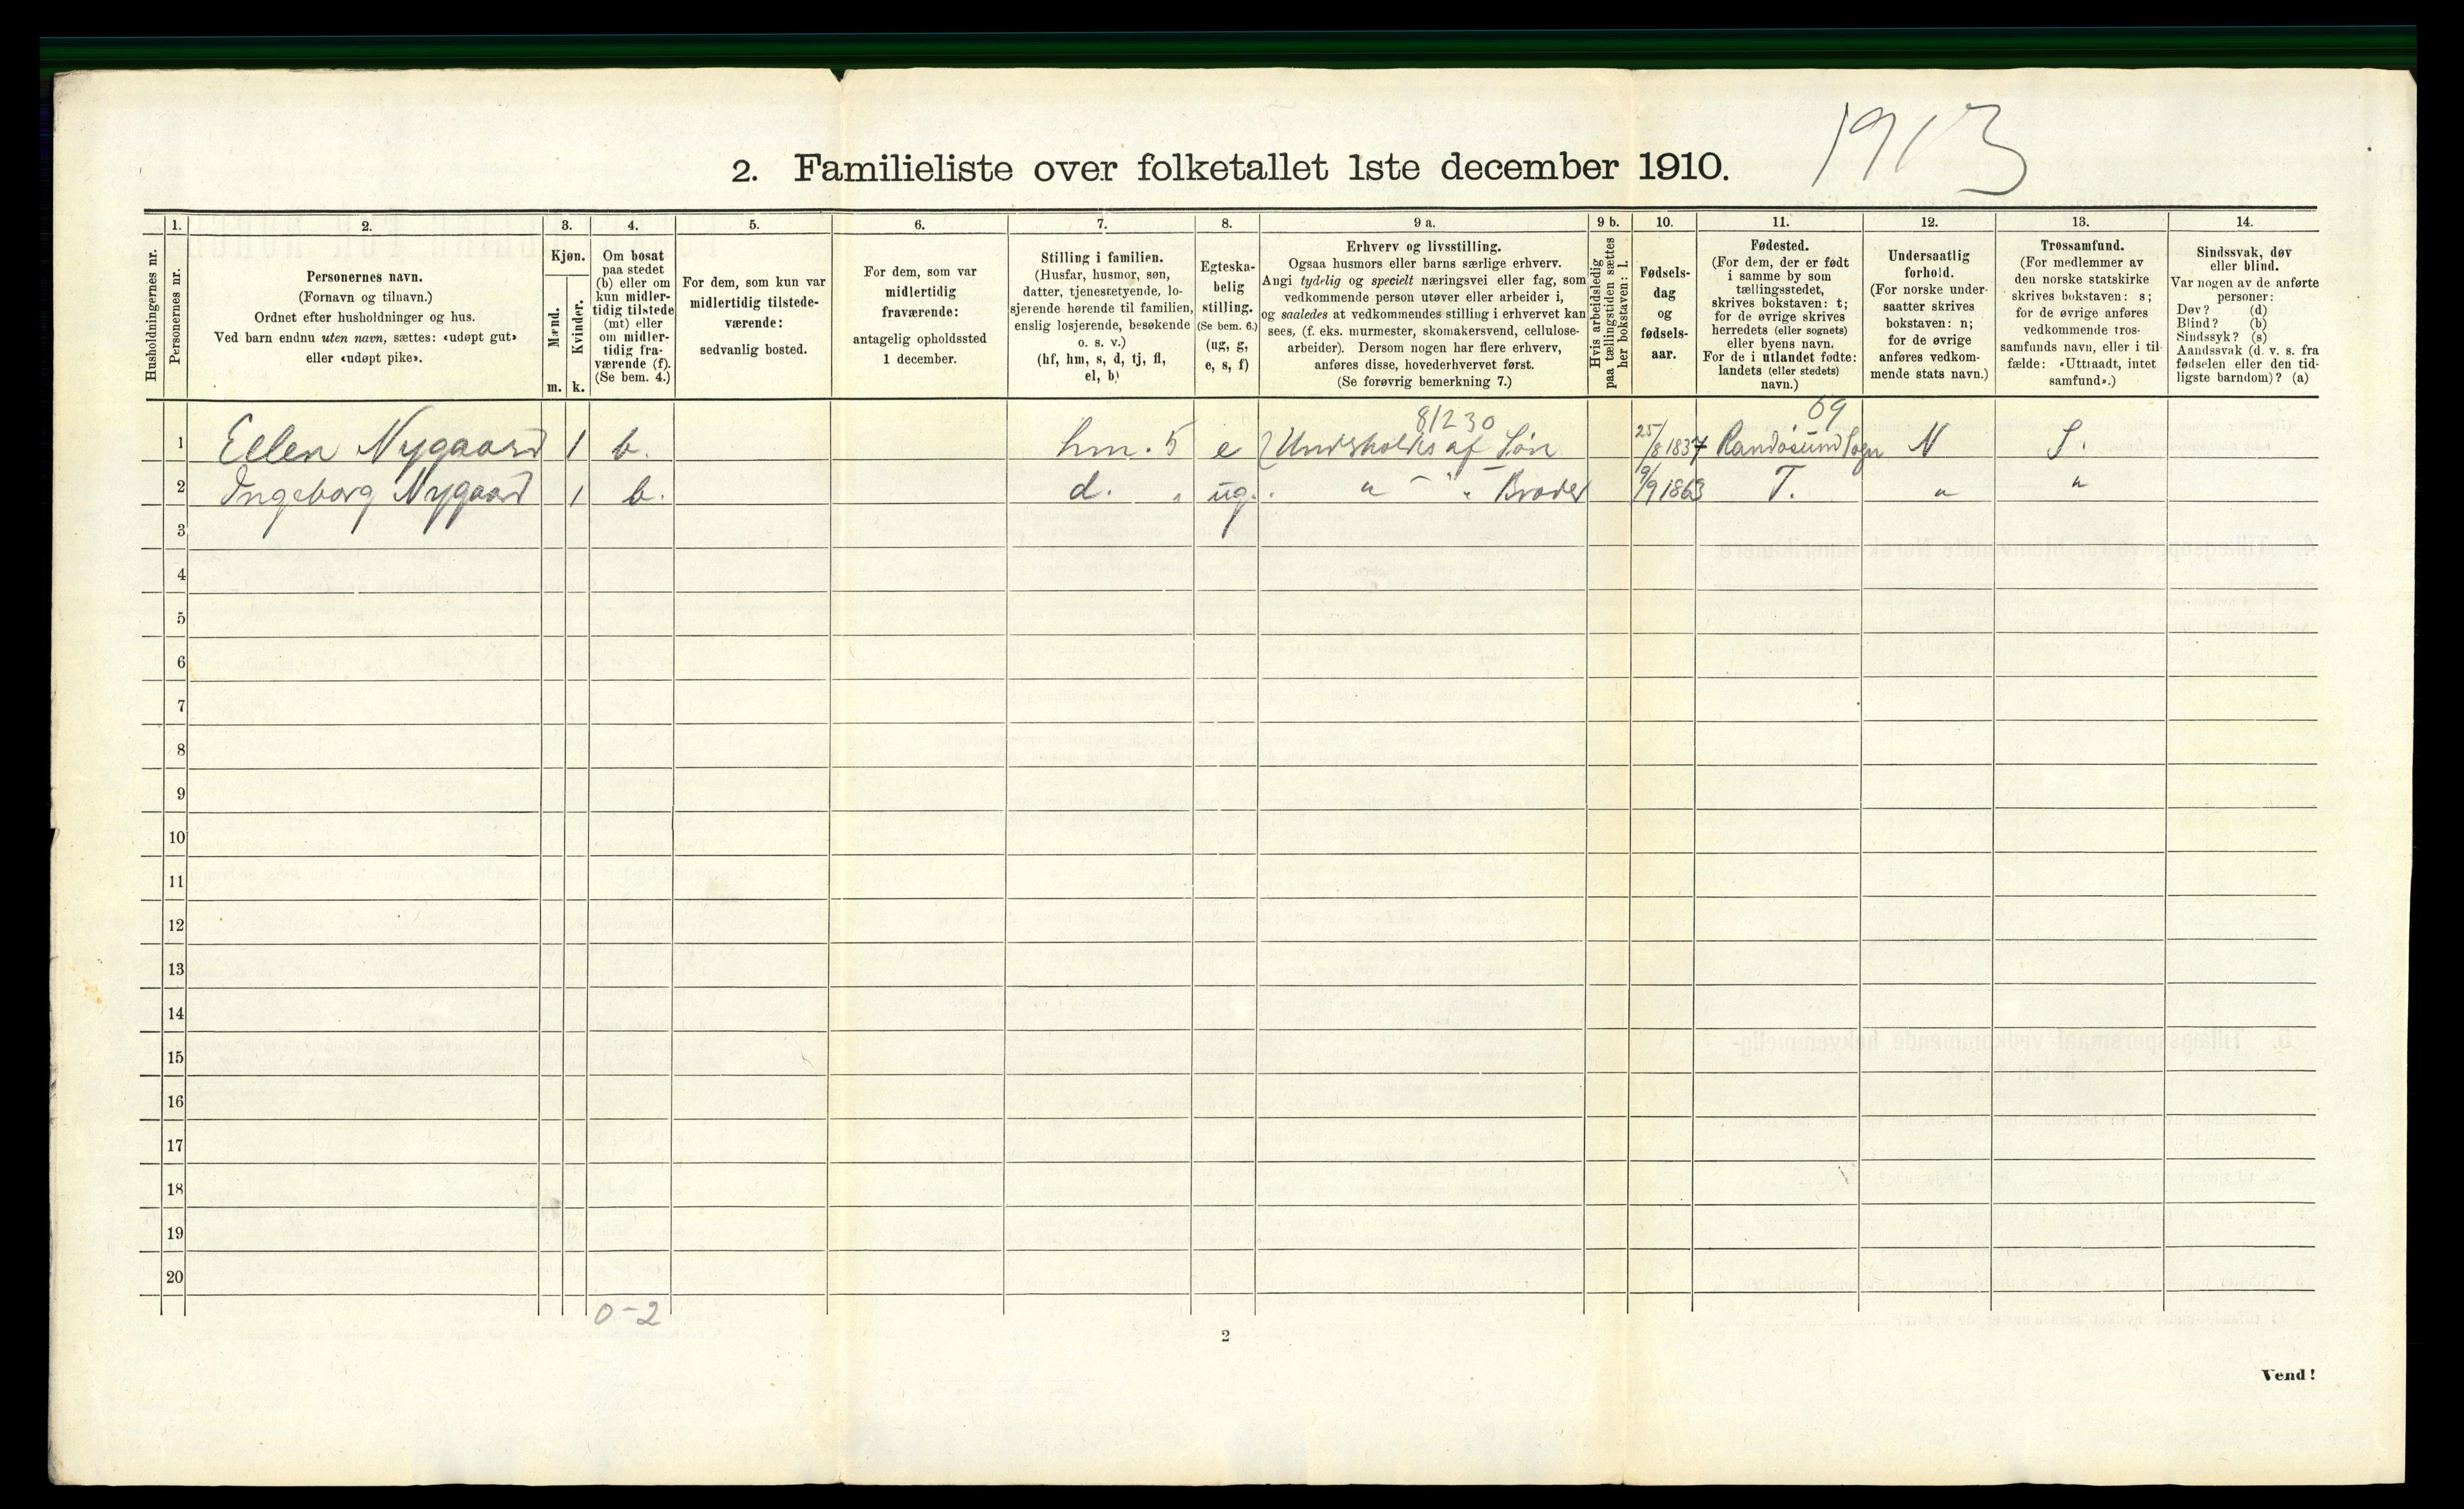 1913
2. Familieliste over folketallet 1ste december 1910.
Husholdningernes nr.
1.
Personernes nr.
2.
Personernes navn.
(Fornavn og tilnavn.)
Ordnet efter husholdninger og hus.
Ved barn endnu uten navn, sættes: «udøpt gut»
eller «udøpt pike».
3.
Kjøn.
Mænd.
m.
Kvinder.
k.
4.
Om bosat
paa stedet
(b) eller om
kun midler-
tidig tilstede
(mt) eller
om midler-
tidig fra-
værende (f).
(Se bem. 4.)
5.
For dem, som kun var
midlertidig tilstede-
værende:
sedvanlig bosted.
6.
For dem, som var
midlertidig
fraværende:
antagelig opholdssted
1 december.
7.
Stilling i familien.
(Husfar, husmor, søn,
datter, tjenestetyende, lo-
sjerende hørende til familien,
enslig losjerende, besøkende
o. s. v.)
(hf, hm, s, d, tj, fl,
el, b)
8.
Egteska-
belig
stilling.
(Se bem. 6.)
(ug, g,
e, s, f)
9 a.
Erhverv og livsstilling.
Ogsaa husmors eller barns særlige erhverv.
Angi tydelig og specielt næringsvei eller fag, som
vedkommende person utøver eller arbeider i,
og saaledes at vedkommendes stilling i erhvervet kan
sees, (f. eks. murmester, skomakersvend, cellulose-
arbeider). Dersom nogen har flere erhverv,
anføres disse, hovederhvervet først.
(Se forøvrig bemerkning 7.)
9 b.
Hvis arbeidsledig
paa tællingstiden sættes
her bokstaven: l.
10.
Fødsels-
dag
og
fødsels-
aar.
11.
Fødested.
(For dem, der er født
i samme by som
tællingsstedet,
skrives bokstaven: t;
for de øvrige skrives
herredets (eller sognets)
eller byens navn.
For de i utlandet fødte:
landets (eller stedets)
navn.)
12.
Undersaatlig
forhold.
(For norske under-
saatter skrives
bokstaven: n;
for de øvrige
anføres vedkom-
mende stats navn.)
13.
Trossamfund.
(For medlemmer av
den norske statskirke
skrives bokstaven: s;
for de øvrige anføres
vedkommende tros-
samfunds navn, eller i til-
fælde: «Uttraadt, intet
samfund».)
14.
Sindssvak, døv
eller blind.
Var nogen av de anførte
personer:
Døv? (d)
Blind? (b)
Sindssyk? (s)
Aandssvak (d. v. s. fra
fødselen eller den tid-
ligste barndom)? (a)
81230 69
1 Ellen Nygaard 1 b. hm. 5 e Underholdes af Søn 25/8 1837 Randøsund Sogn N S.
2 Ingeborg Nygaard 1 b. d. " ug. " " " Broder 9/9 1863 T. " "
3
4
5
6
7
8
9
10
11
12
13
14
15
16
17
18
19
20
0-2
2
Vend!